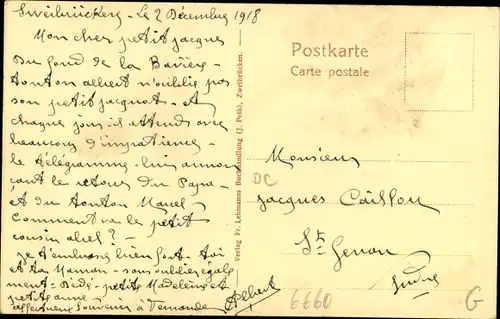 Sweibrücken - Le 2 Décembre 1918
Mon cher petit jacques
Du fond de la Bavière -
tonton albert n'oublie pas
son petit jacquot - et
chaque jour il attend avec
beaucoup d'impatience -
le télégramme lui annon
çant le retour du Papa -
et du tonton Marcel
Comment va le petit
cousin abel ?
je t'embrasse bien fort - toi
et ta Maman - sans oublier égale
ment - petite Madeleine et
petite anne
affectueux Souvenir à
Albert
Verlag Fr. Lehmanns Buchhandlung (J. Peth), Zweibrücken.
Postkarte
Carte postale
Monsieur
DC
jacques Caillou
St Genou
Indre
6660
G